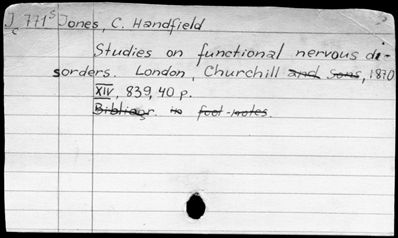 J 771 S Jones, C. Handfield
c
Studies on functional nervous di-
sorders. London, Churchill and sons, 1870
XIV, 839, 40 p.
Bibliogr. in foot-notes.